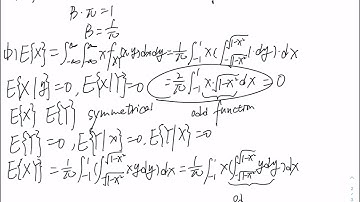 B · π = 1
B = 1/π
(b) E{X} = ∫_{-∞}^{∞} ∫_{-∞}^{∞} x f(x,y) dx dy = 1/π ∫_{-1}^{1} x ( ∫_{-√(1-x²)}^{√(1-x²)} 1 · dy ) · dx
E{X|y} = 0, E{X|Y} = 0 = 2/π ∫_{-1}^{1} x · √(1-x²) dx = 0
E{X} E{Y} symmetrical odd function
E{Y} = 0, E{Y|x} = 0, E{Y|X} = 0
E{XY} = 1/π ∫_{-1}^{1} ( ∫_{-√(1-x²)}^{√(1-x²)} xy dy ) dx = 1/π ∫_{-1}^{1} x ( ∫_{-√(1-x²)}^{√(1-x²)} y dy ) dx